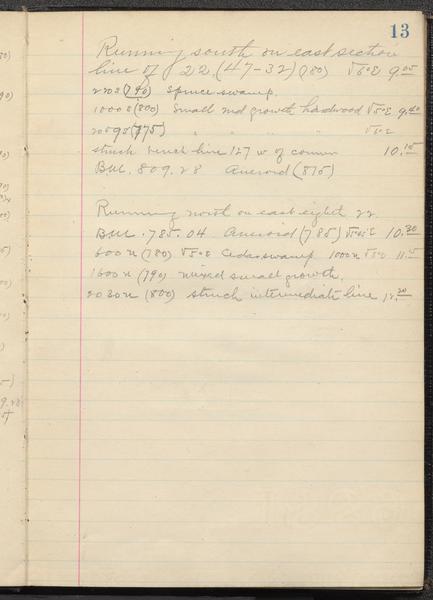 13
Running south on east section
line of 22, (47-32) (780) V5°E 9.05
220 S (790) Spruce swamp.
1000 S (800) Small 2nd growth hardwood V5°E 9.40
2059 S (775) " " " " V5°E
struck bench line 127 w of corner 10.15
B.M. 809.28 Aneroid (815)
Running north on east eight 22.
B.M. 785.04 Aneroid (785) 10.30
600 N (780) V5°E Cedar swamp 1000 N V5°E
1600 N (790) mixed small growth.
2030 N (800) struck intermediate line 12.20